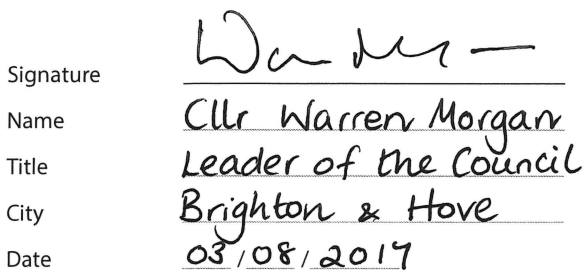 Signature
Name Cllr Warren Morgan
Title Leader of the Council
City Brighton & Hove
Date 03/08/2017